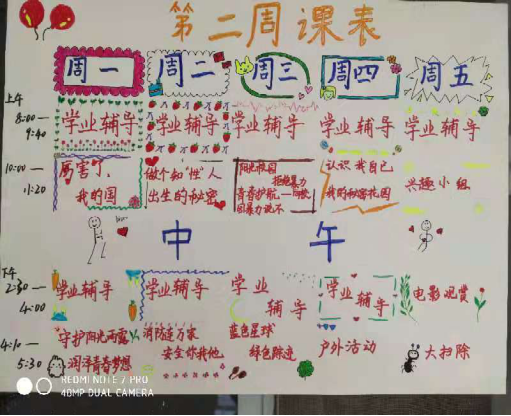 第二周课表
周一 周二 周三 周四 周五
上午
8:00—9:40 学业辅导 学业辅导 学业辅导 学业辅导 学业辅导
10:00—11:20
厉害了,我的国
做个知"性"人
出生的秘密
阳光校园
拒绝暴力
青春护航—向校园暴力说不
认识我自己
我的秘密花园
兴趣小组
中午
下午
2:30—4:00 学业辅导 学业辅导 学业辅导 学业辅导 电影观赏
4:10—5:30
守护阳光雨露
润泽青春梦想
消防连万家
安全你我他
蓝色星球
绿色踪迹
户外活动
大扫除
REDMI NOTE 7 PRO
48MP DUAL CAMERA